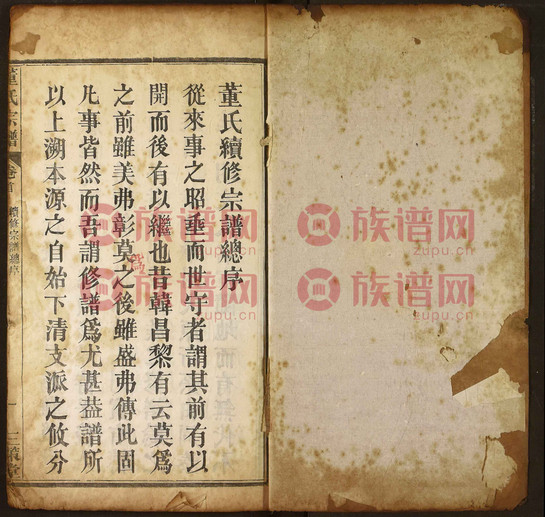 董氏續修宗譜總序
從來事之昭垂而世守者謂其前有以
開而後有以繼也昔韓昌黎有云莫爲
之前雖美弗彰莫之後雖盛弗傳此固
爲
凡事皆然而吾謂修譜爲尤甚葢譜所
以上溯本源之自始下清支派之攸分
董氏宗譜
卷首
續修宗譜總序
一
族谱网
zupu.cn
族谱网
zupu.cn
族谱网
zupu.cn
族谱网
zupu.cn